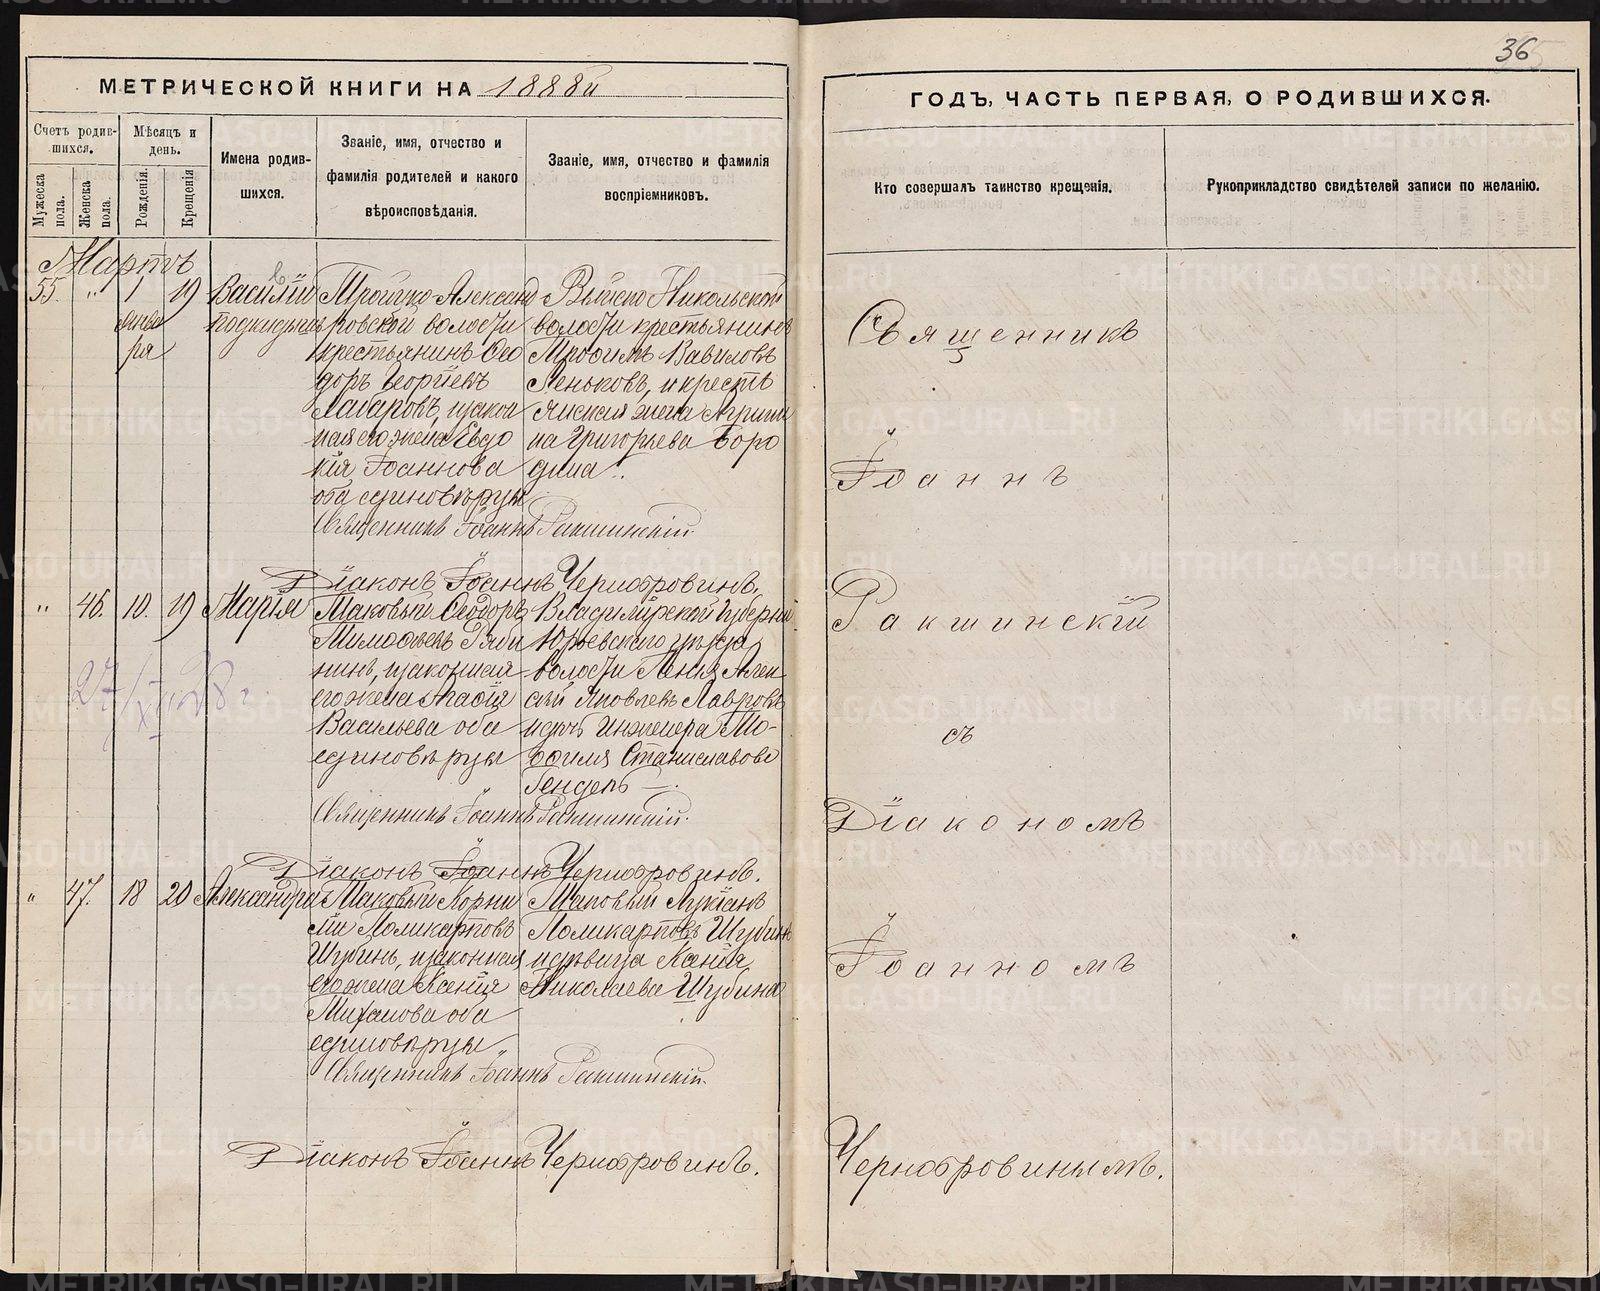 36
МЕТРИЧЕСКОЙ КНИГИ НА 1888й
ГОДЪ, ЧАСТЬ ПЕРВАЯ, О РОДИВШИХСЯ.
Счетъ родив-
шихся.
Мужеска
пола.
Женска
пола.
Мѣсяцъ и
день.
Рожденія.
Крещенія
Имена родив-
шихся.
Званіе, имя, отчество и
фамилія родителей и какого
вѣроисповѣданія.
Званіе, имя, отчество и фамилія
воспріемниковъ.
Кто совершалъ таинство крещенія.
Рукоприкладство свидѣтелей записи по желанію.
Мартъ
55. " 1 19
Января
Василій
подкидышъ
Троицко-Александ
ровской волости
крестьянинъ Ѳео
доръ Георгіевъ
законная его жена Евдо
кія Іоаннова
оба единовѣрцы
Никольской
волости крестьянинъ
Трофимъ Вавиловъ
Пеньковъ, и кресть
янская жена Агрипи
на Григорьева Боро
дина.
Священникъ Іоаннъ Ракшинскій.
Діаконъ Іоаннъ Чернобровинъ.
" 46. 10. 19 Марія
Ѳеодоръ
Тимофѣевъ Ряби
нинъ, и законная
его жена Таисія
Васильева оба
единовѣрцы
Владимірской губерніи
Юрьевскаго уѣзда
волости
Алек
сѣй Яковлевъ Лавровъ
и дочь инженера
Станиславова
Священникъ Іоаннъ Ракшинскій.
Діаконъ Іоаннъ Чернобровинъ.
" 47. 18 20 Александра
Корни
лій Поликарповъ
Шубинъ, и законная
его жена Ксенія
оба
единовѣрцы
Лукіанъ
Поликарповъ Шубинъ
и дѣвица
Николаева Шубина
Священникъ Іоаннъ Ракшинскій.
Діаконъ Іоаннъ Чернобровинъ.
Священникъ
Іоаннъ
Ракшинскій
съ
Діакономъ
Іоанномъ
Чернобровинымъ.
METRIKI.GASO-URAL.RU